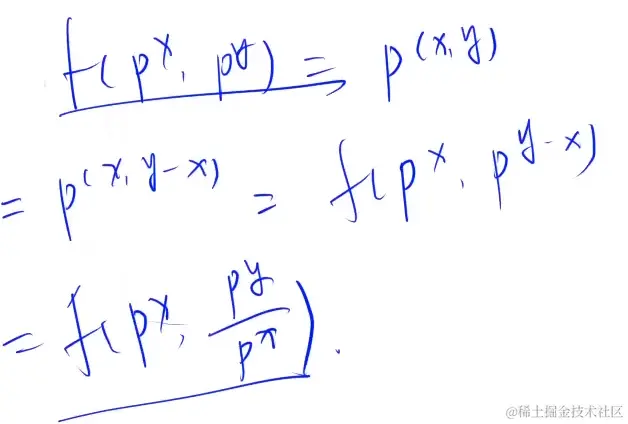 f(p^x, p^y) = p^(x,y)
= p^(x,y-x) = f(p^x, p^{y-x})
= f(p^x, p^y/p^x).
@稀土掘金技术社区